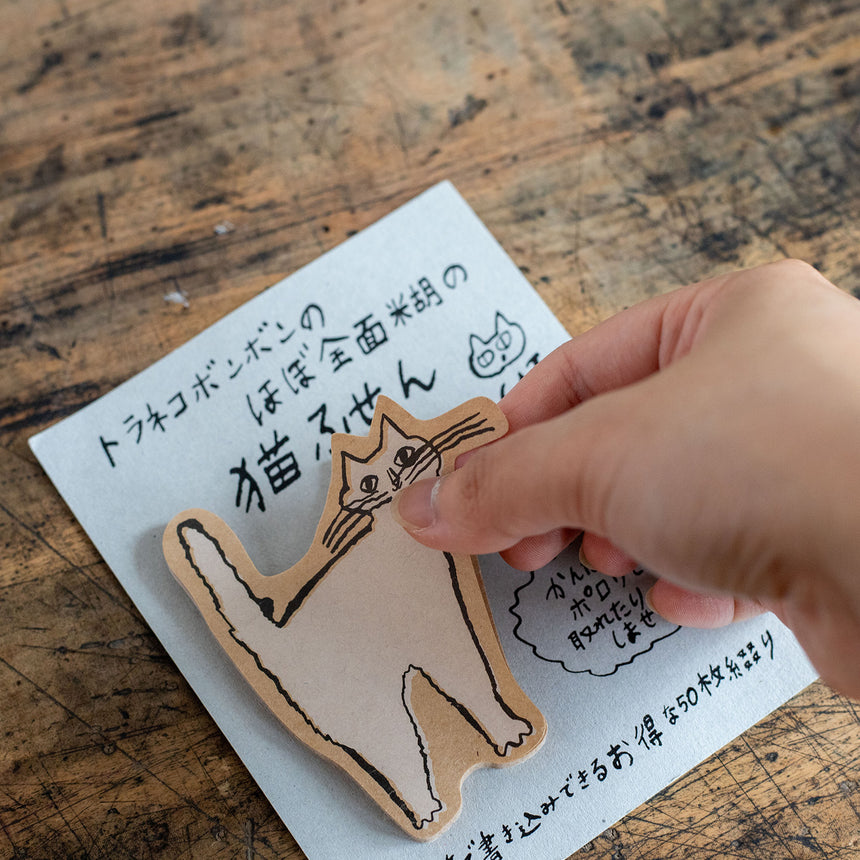 トラネコボンボンの
ほぼ全面米胡の
猫ふせん
ポロリ
取れたり
しませ
書き込みできるお得な50枚綴り